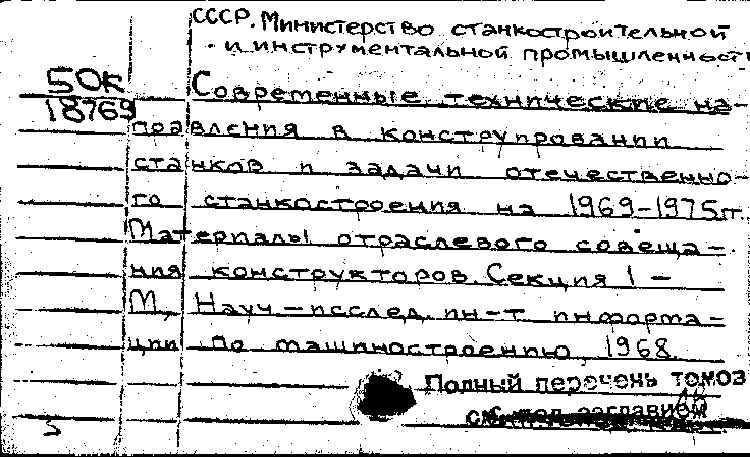 СССР. Министерство станкостроительной
и инструментальной промышленности
50к
18769
Современные технические на-
правления в конструировании
станков и задачи отечественно-
го станкостроения на 1969-1975гг.
Материалы отраслевого совеща-
ния конструкторов. Секция 1 -
М., Науч-исслед. ин-т информа-
ции по машиностроению, 1968.
Полный перечень томов
см. под заглавием